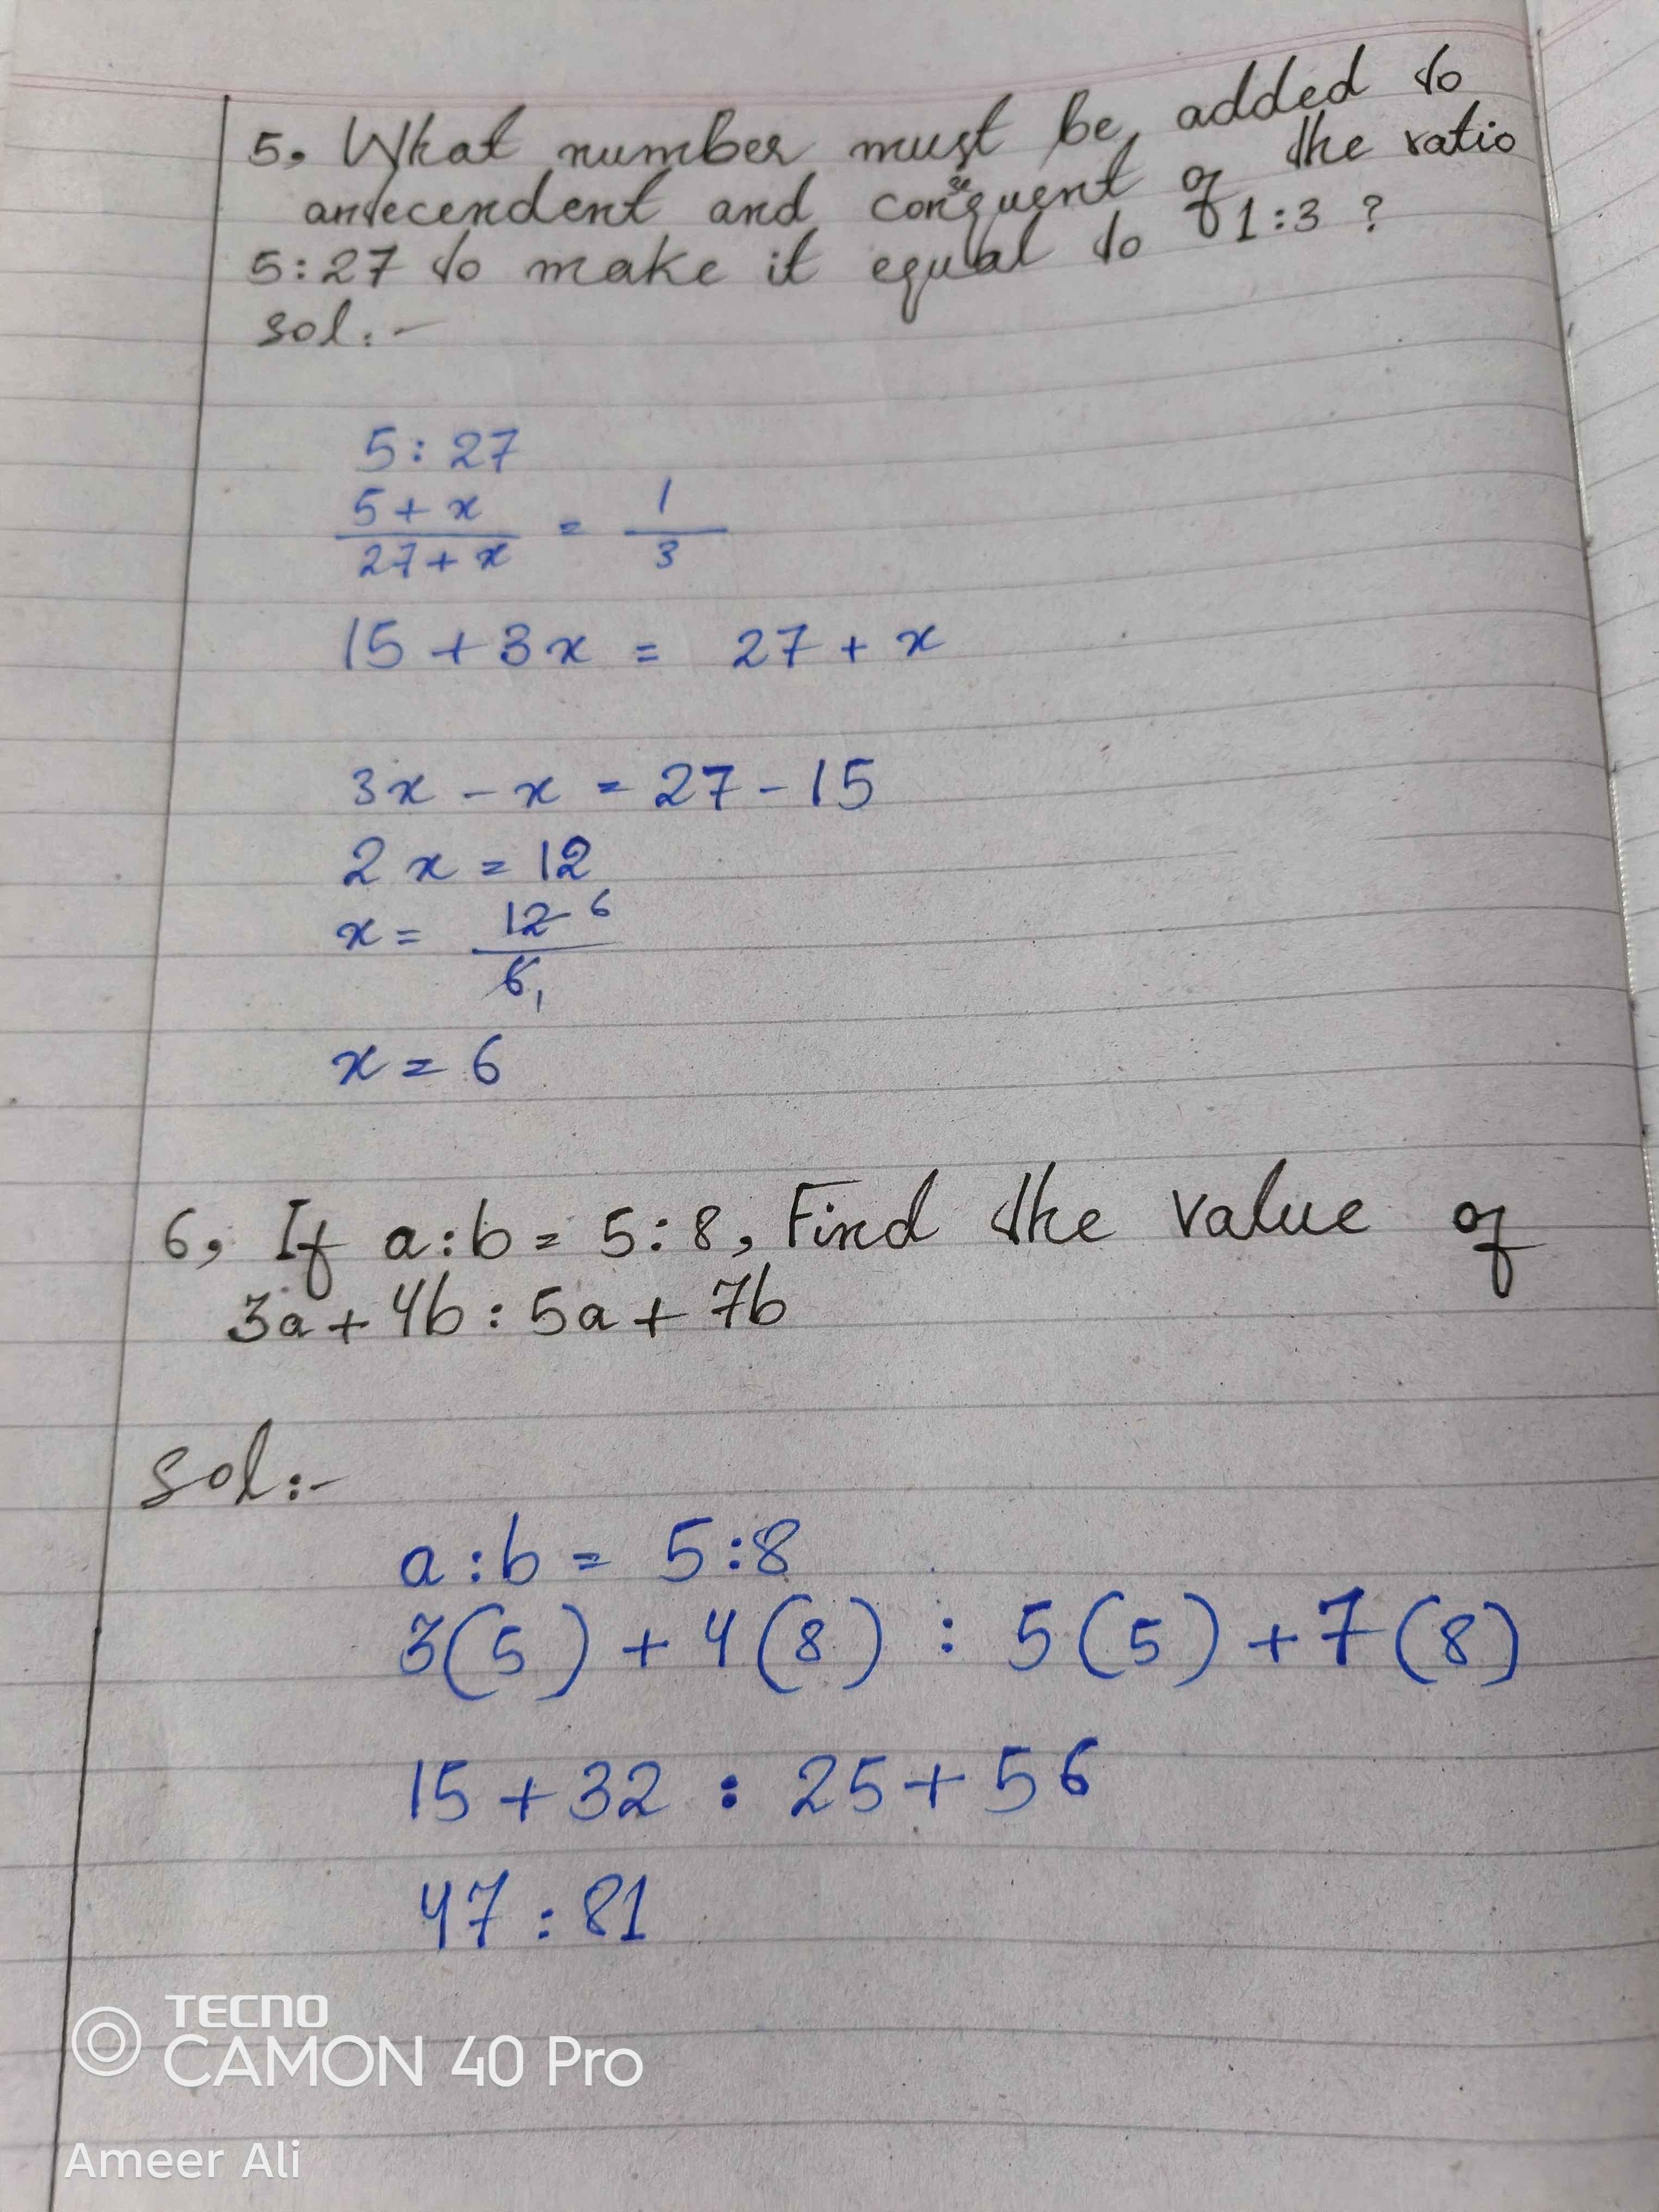 5, What number must be added to
antecendent and consequent of the ratio
5:27 to make it equal to 1:3 ?
sol:-
5:27
5+x
27+x
=
1
3
15+3x = 27+x
3x-x = 27-15
2x = 12
x = 12 6
6 1
x = 6
6, If a:b = 5:8, Find the value of
3a+4b : 5a+7b
Sol:-
a:b = 5:8
3(5)+4(8) : 5(5)+7(8)
15+32 : 25+56
47 : 81
TECNO
CAMON 40 Pro
Ameer Ali